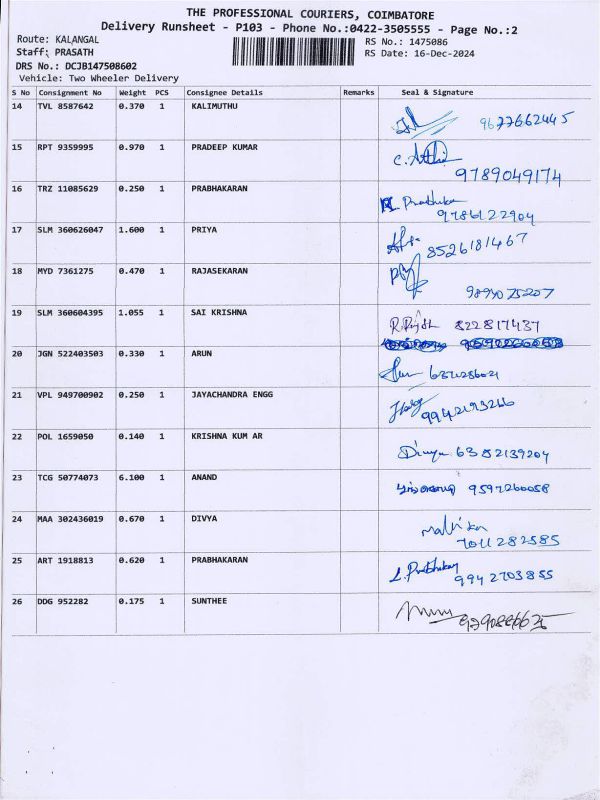 THE PROFESSIONAL COURIERS, COIMBATORE
Delivery Runsheet - P103 - Phone No.:0422-3505555 - Page No.:2
Route: KALANGAL RS No.: 1475086
Staff: PRASATH RS Date: 16-Dec-2024
DRS No.: DCJB147508602
Vehicle: Two Wheeler Delivery
S No Consignment No Weight PCS Consignee Details Remarks Seal & Signature
14 TVL 8587642 0.370 1 KALIMUTHU 9677662445
15 RPT 9359995 0.970 1 PRADEEP KUMAR
9789049174
16 TRZ 11085629 0.250 1 PRABHAKARAN
9786122904
17 SLM 360626047 1.600 1 PRIYA 8526181467
18 MYD 7361275 0.470 1 RAJASEKARAN
19 SLM 360604395 1.055 1 SAI KRISHNA 822817437
20 JGN 522403503 0.330 1 ARUN
21 VPL 949700902 0.250 1 JAYACHANDRA ENGG
22 POL 1659050 0.140 1 KRISHNA KUM AR Divya 6382139204
23 TCG 50774073 6.100 1 ANAND 9597260058
24 MAA 302436019 0.670 1 DIVYA
7011282585
25 ART 1918813 0.620 1 PRABHAKARAN 9942703855
26 DDG 952282 0.175 1 SUNTHEE